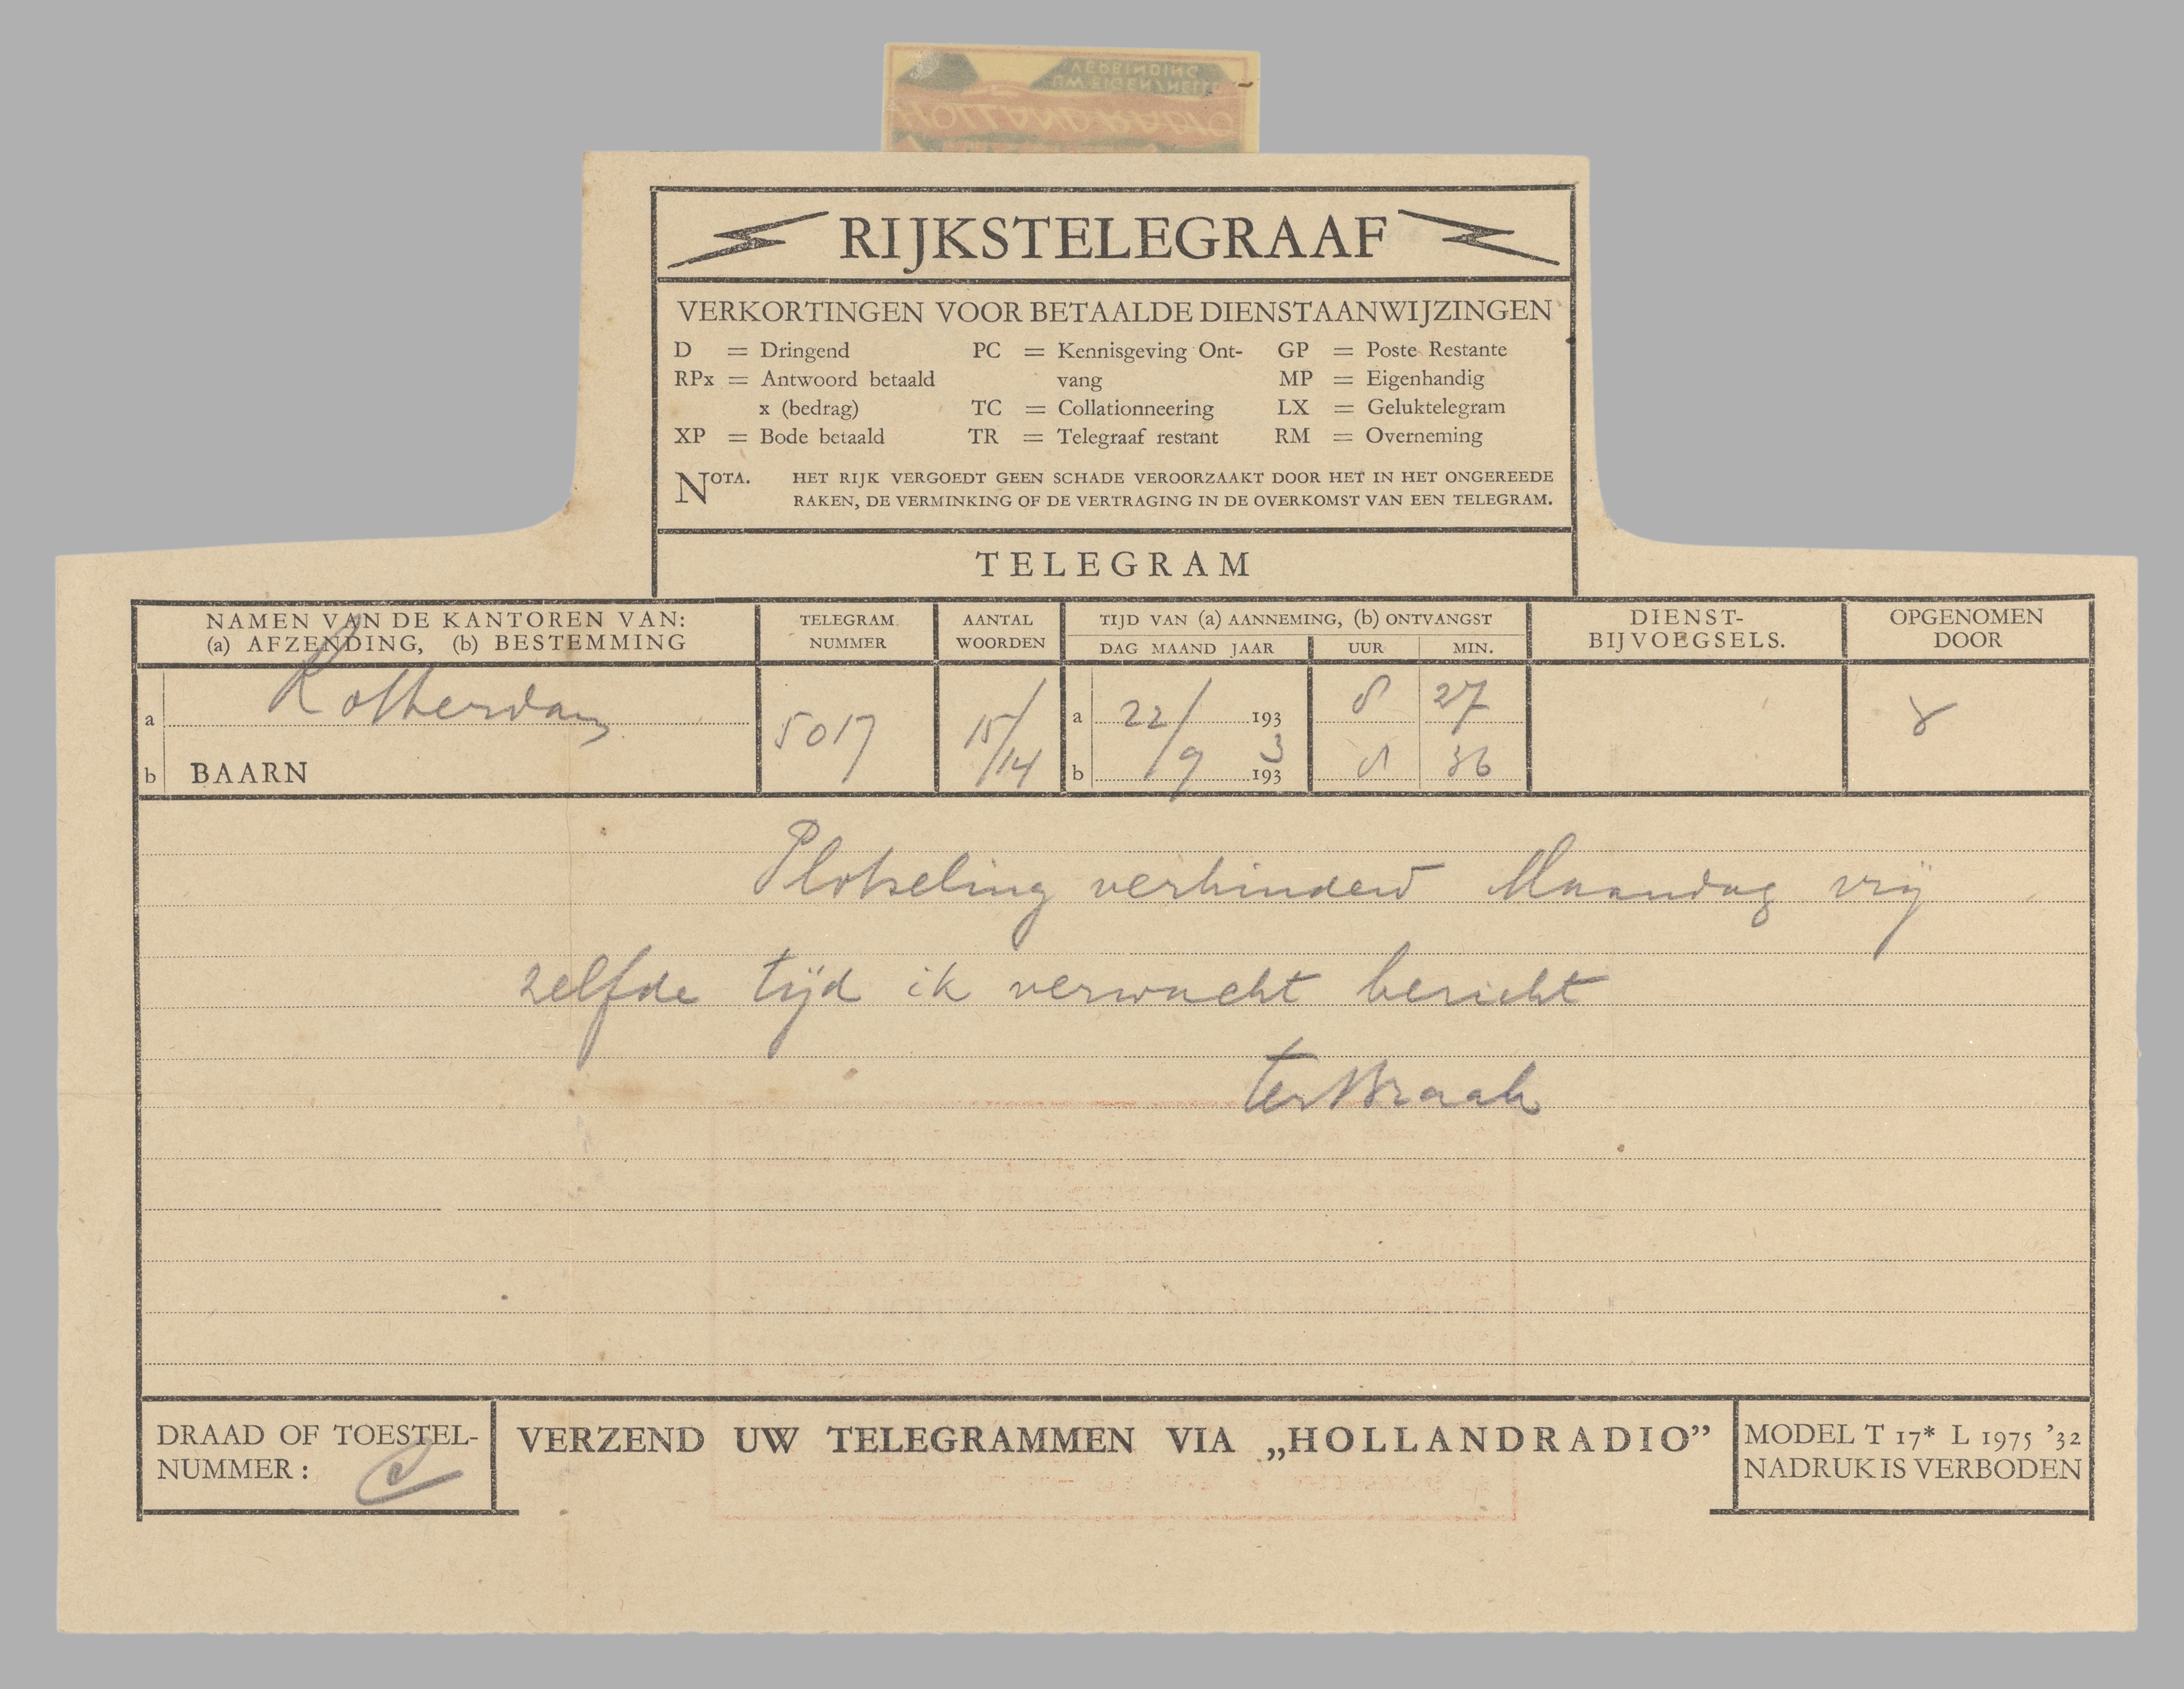 VERBINDING
UW EIGEN SNELLE
HOLLAND RADIO
RIJKSTELEGRAAF
VERKORTINGEN VOOR BETAALDE DIENSTAANWIJZINGEN
D = Dringend PC = Kennisgeving Ont- GP = Poste Restante
RPx = Antwoord betaald vang MP = Eigenhandig
x (bedrag) TC = Collationneering LX = Geluktelegram
XP = Bode betaald TR = Telegraaf restant RM = Overneming
NOTA. HET RIJK VERGOEDT GEEN SCHADE VEROORZAAKT DOOR HET IN HET ONGEREEDE
RAKEN, DE VERMINKING OF DE VERTRAGING IN DE OVERKOMST VAN EEN TELEGRAM.
TELEGRAM
NAMEN VAN DE KANTOREN VAN: TELEGRAM AANTAL TIJD VAN (a) AANNEMING, (b) ONTVANGST DIENST- OPGENOMEN
(a) AFZENDING, (b) BESTEMMING NUMMER WOORDEN DAG MAAND JAAR UUR MIN. BIJVOEGSELS. DOOR
a Rotterdam 5017 15/ a 22/ 193 8 27
b BAARN /14 b /9 193 3 8 36
Plotseling verhinderd Maandag vrij
zelfde tijd ik verwacht bericht
ter Braak
DRAAD OF TOESTEL-
NUMMER:
VERZEND UW TELEGRAMMEN VIA „HOLLANDRADIO”
MODEL T 17* L 1975 ’32
NADRUK IS VERBODEN